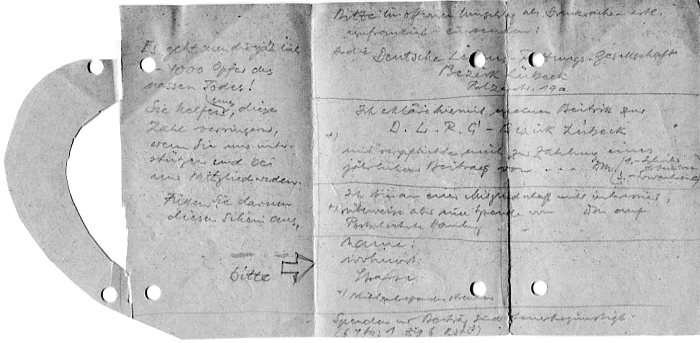 Es geht um die jährlich
~ 1000 Opfer des
nassen Todes!
Sie helfen uns, diese
Zahl verringern,
wenn Sie uns unter-
stützen und bei
uns Mitglied werden.
Füllen Sie darum
diesen Schein aus,
bitte
Bitte im offenen Umschlag als Drucksache
unfrankiert einsenden!
An die Deutsche Lebens-Rettungs-Gesellschaft
Bezirk Lübeck
19a
Ich erkläre hiermit meinen Beitritt zur
D. L. R. G. - Bezirk Lübeck
*) und verpflichte mich zur Zahlung eines
jährlichen Beitrags von .... DM
Ich bin an einer Mitgliedschaft nicht interessiert,
*) überweise aber eine Spende von DM auf
Postscheckkonto Hamburg
Name:
Wohnort:
Straße:
*) Nichtzutreffendes streichen
Spenden und Beiträge sind steuerbegünstigt.